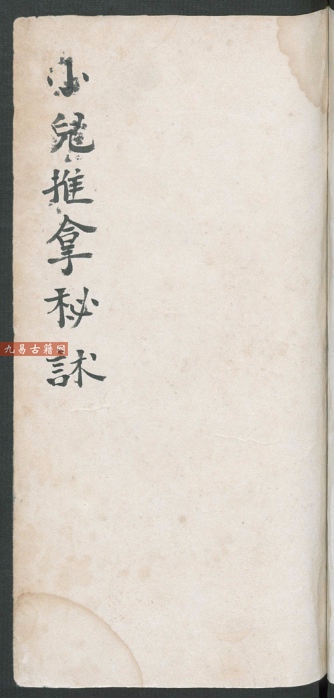 小兒推拿秘訹
九易古籍网